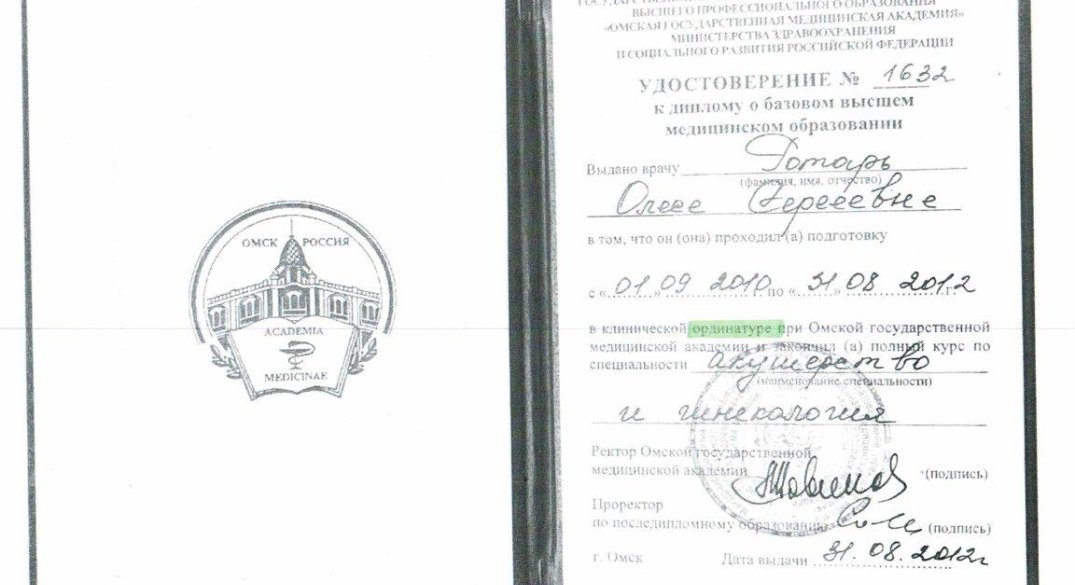 ОМСК РОССИЯ
ACADEMIA
MEDICINAE
ВЫСШЕГО ПРОФЕССИОНАЛЬНОГО ОБРАЗОВАНИЯ
«ОМСКАЯ ГОСУДАРСТВЕННАЯ МЕДИЦИНСКАЯ АКАДЕМИЯ»
МИНИСТЕРСТВА ЗДРАВООХРАНЕНИЯ
И СОЦИАЛЬНОГО РАЗВИТИЯ РОССИЙСКОЙ ФЕДЕРАЦИИ
УДОСТОВЕРЕНИЕ № 1632
к диплому о базовом высшем
медицинском образовании
Выдано врачу Готарь
(фамилия, имя, отчество)
Олесе Сергеевне
в том, что он (она) проходил (а) подготовку
с «01» 09 2010 г. по «31» 08 2012 г.
в клинической ординатуре при Омской государственной
медицинской академии и закончил (а) полный курс по
специальности акушерство
(наименование специальности)
и гинекология
Ректор Омской государственной
медицинской академии (подпись)
Проректор
по последипломному образованию (подпись)
г. Омск Дата выдачи 31.08.2012г